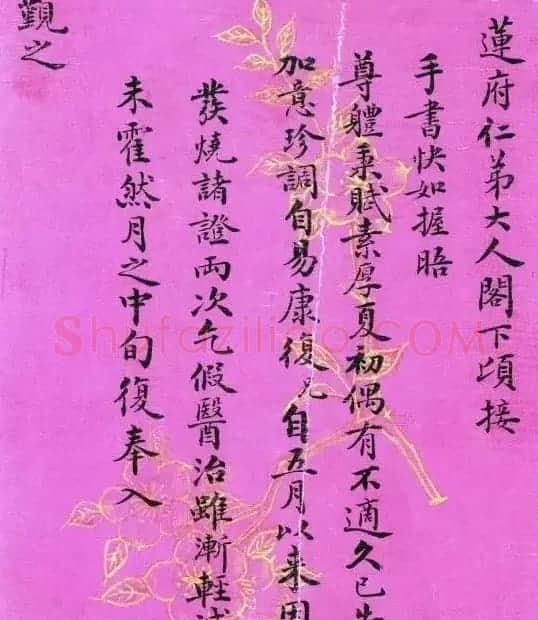 蓮府仁弟大人閣下頃接
手書快如握晤
尊體秉賦素厚夏初偶有不適久已
加意珍調自易康復兄自五月以來因
發燒諸證兩次乞假醫治雖漸輕減
未霍然月之中旬復奉入
觀之
Shufaziliao.COM